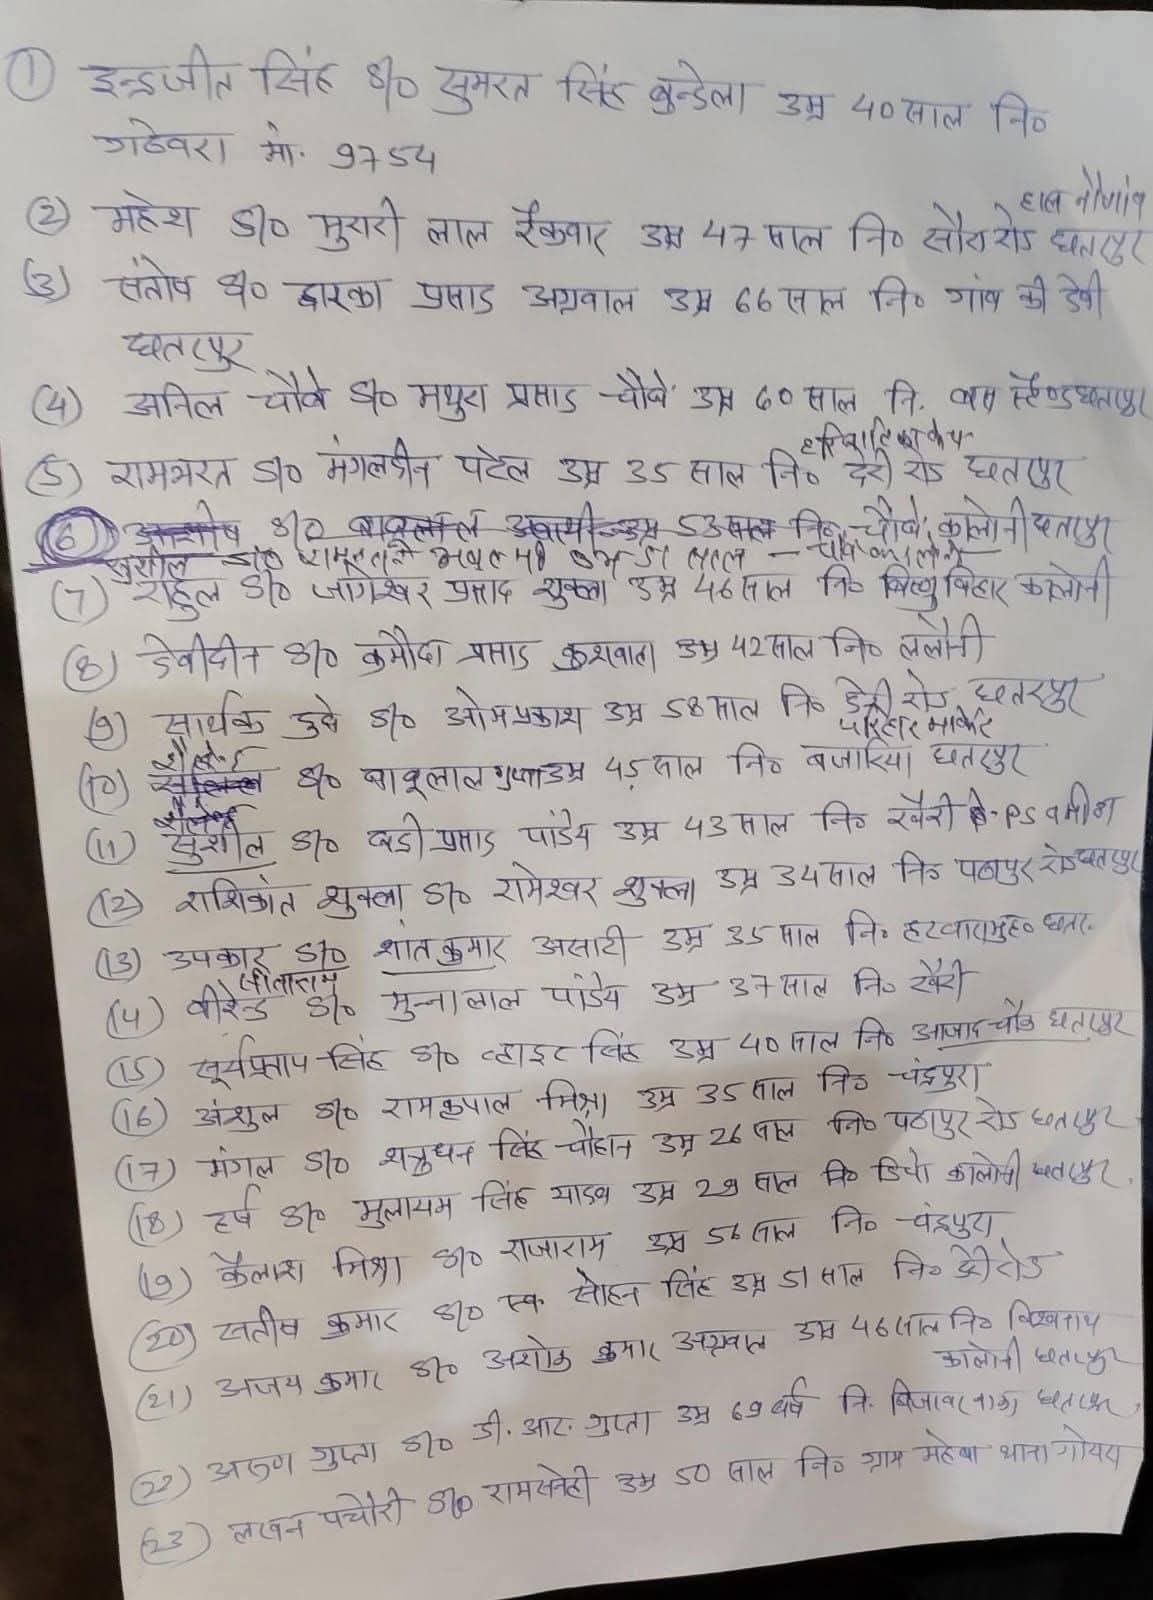 ① इन्द्रजीत सिंह S/o सुमरत सिंह बुन्डेला उम्र 40 साल नि०
गठेवरा मो. 9754
हाल नौगांव
(2) महेश S/o मुरारी लाल रैकवार उम्र 47 साल नि० सौरा रोड छतरपुर
(3) संतोष S/o द्वारका प्रसाद अग्रवाल उम्र 66 साल नि० गांव की देवी
छतरपुर
(4) अनिल चौबे S/o मथुरा प्रसाद चौबे उम्र 60 साल नि. बस स्टैण्ड छतरपुर
(5) रामभरत S/o मंगलदीन पटेल उम्र 35 साल नि० देरी रोड छतरपुर
(6) S/o बाबूलाल उम्र 53 साल नि० चौबे कालोनी छतरपुर
सुशील S/o
(7) राहुल S/o जागेश्वर प्रसाद शुक्ला उम्र 46 साल नि० विष्णु विहार कालोनी
(8) देवीदीन S/o कमौदा प्रसाद कुशवाहा उम्र 42 साल नि० ललौनी
(9) सार्थक दुबे S/o ओमप्रकाश उम्र 58 साल नि० डेरी रोड छतरपुर
परिहार मार्केट
(10) S/o बाबूलाल गुप्ता उम्र 45 साल नि० बजारिया छतरपुर
शैलेन्द्र
(11) सुशील S/o बद्री प्रसाद पांडेय उम्र 43 साल नि० खैरी PS बमीठा
(12) शशिकांत शुक्ला S/o रामेश्वर शुक्ला उम्र 34 साल नि० पठापुर रोड छतरपुर
(13) उपकार S/o शांतकुमार असाटी उम्र 35 साल नि० हटवारा मुह० छतर.
सीताराम
(14) वीरेन्द्र S/o मुन्नालाल पांडेय उम्र 37 साल नि० खैरी
(15) सूर्यप्रताप सिंह S/o व्हाइट सिंह उम्र 40 साल नि० आजाद चौक छतरपुर
(16) अंशुल S/o रामकृपाल मिश्रा उम्र 35 साल नि० चंद्रपुरा
(17) मंगल S/o शत्रुघन सिंह चौहान उम्र 26 साल नि० पठापुर रोड छतरपुर
(18) हर्ष S/o मुलायम सिंह यादव उम्र 29 साल नि० कालोनी छतरपुर
(19) कैलाश मिश्रा S/o राजाराम उम्र 56 साल नि० चंद्रपुरा
(20) सतीष कुमार S/o स्व. सोहन सिंह उम्र 51 साल नि० डेरी रोड
(21) अजय कुमार S/o अशोक कुमार अग्रवाल उम्र 46 साल नि० विश्वनाथ
कालोनी छतरपुर
(22) अरुण गुप्ता S/o डी. आर. गुप्ता उम्र 69 वर्ष नि. बिजावर नाका छतरपुर
(23) लखन पचौरी S/o रामसनेही उम्र 50 साल नि० ग्राम महेबा थाना गोयरा